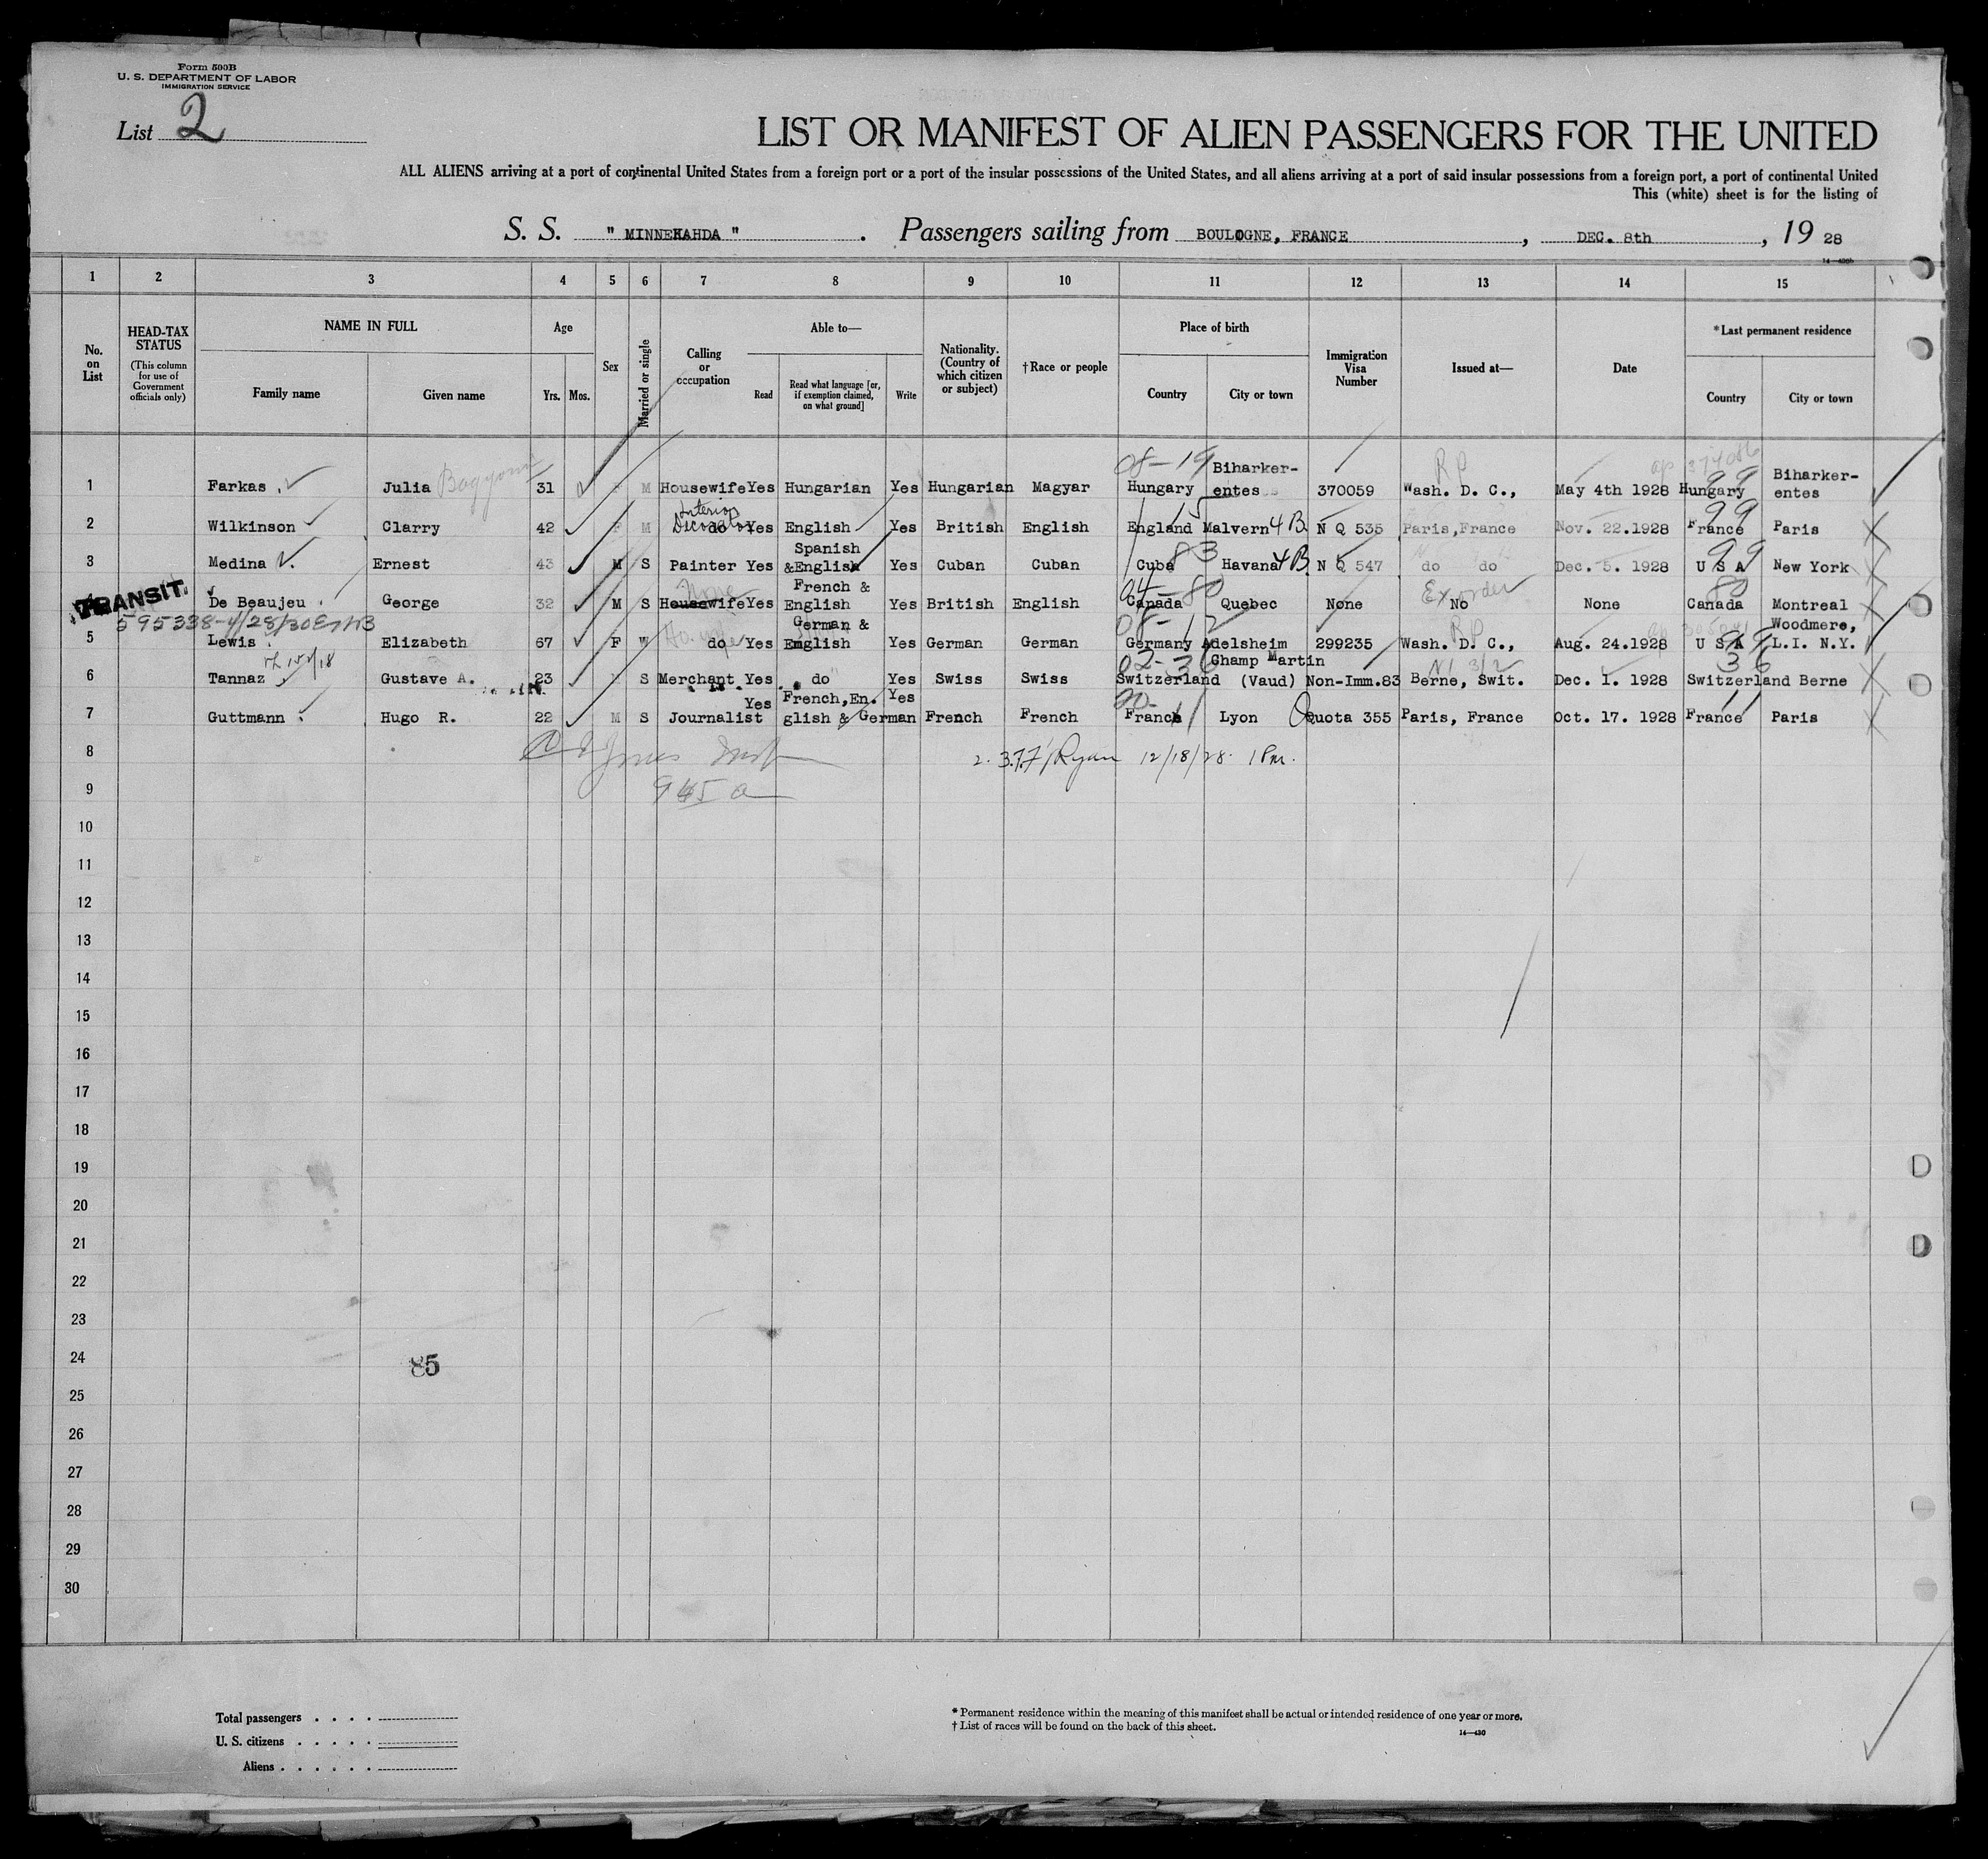 Form 500B
U. S. DEPARTMENT OF LABOR
IMMIGRATION SERVICE
List 2
LIST OR MANIFEST OF ALIEN PASSENGERS FOR THE UNITED
ALL ALIENS arriving at a port of continental United States from a foreign port or a port of the insular possessions of the United States, and all aliens arriving at a port of said insular possessions from a foreign port, a port of continental United
This (white) sheet is for the listing of
S. S. " MINNEKAHDA " . Passengers sailing from BOULOGNE, FRANCE , DEC. 8th , 19 28
1 2 3 4 5 6 7 8 9 10 11 12 13 14 15
No. on List
HEAD-TAX STATUS
(This column for use of Government officials only)
NAME IN FULL
Family name Given name
Age
Yrs. Mos.
Sex
Married or single
Calling or occupation
Able to—
Read
Read what language [or, if exemption claimed, on what ground]
Write
Nationality. (Country of which citizen or subject)
†Race or people
Place of birth
Country City or town
Immigration Visa Number
Issued at—
Date
*Last permanent residence
Country City or town
08-19 Biharker- RP 99 Biharker-
1 Farkas Julia 31 M Housewife Yes Hungarian Yes Hungarian Magyar Hungary entes 370059 Wash. D. C., May 4th 1928 Hungary entes
Interior 99
2 Wilkinson Clarry 42 F M do Yes English Yes British English England Malvern 4B N Q 535 Paris,France Nov. 22.1928 France Paris
Spanish 83 99
3 Medina Ernest 43 M S Painter Yes &English Yes Cuban Cuban Cuba Havana 4B N Q 547 do do Dec. 5. 1928 U S A New York
TRANSIT. None French & 04-80 Ex order 80
De Beaujeu George 32 M S Housewife Yes English Yes British English Canada Quebec None No None Canada Montreal
German & 08-12 RP Woodmere,
5 Lewis Elizabeth 67 F W do Yes English Yes German German Germany Adelsheim 299235 Wash. D. C., Aug. 24.1928 U S A L.I. N.Y.
02-36 Champ Martin 36
6 Tannaz Gustave A. 23 S Merchant Yes do Yes Swiss Swiss Switzerland (Vaud) Non-Imm.83 Berne, Swit. Dec. 1. 1928 Switzerland Berne
Yes French,En. Yes
7 Guttmann Hugo R. 22 M S Journalist glish & German French French France Lyon Quota 355 Paris, France Oct. 17. 1928 France Paris
8 Ryan 12/18/28. 1 Pm.
9 945 a
10
11
12
13
14
15
16
17
18
19
20
21
22
23
24 85
25
26
27
28
29
30
Total passengers
U. S. citizens
Aliens
* Permanent residence within the meaning of this manifest shall be actual or intended residence of one year or more.
† List of races will be found on the back of this sheet.
14—430